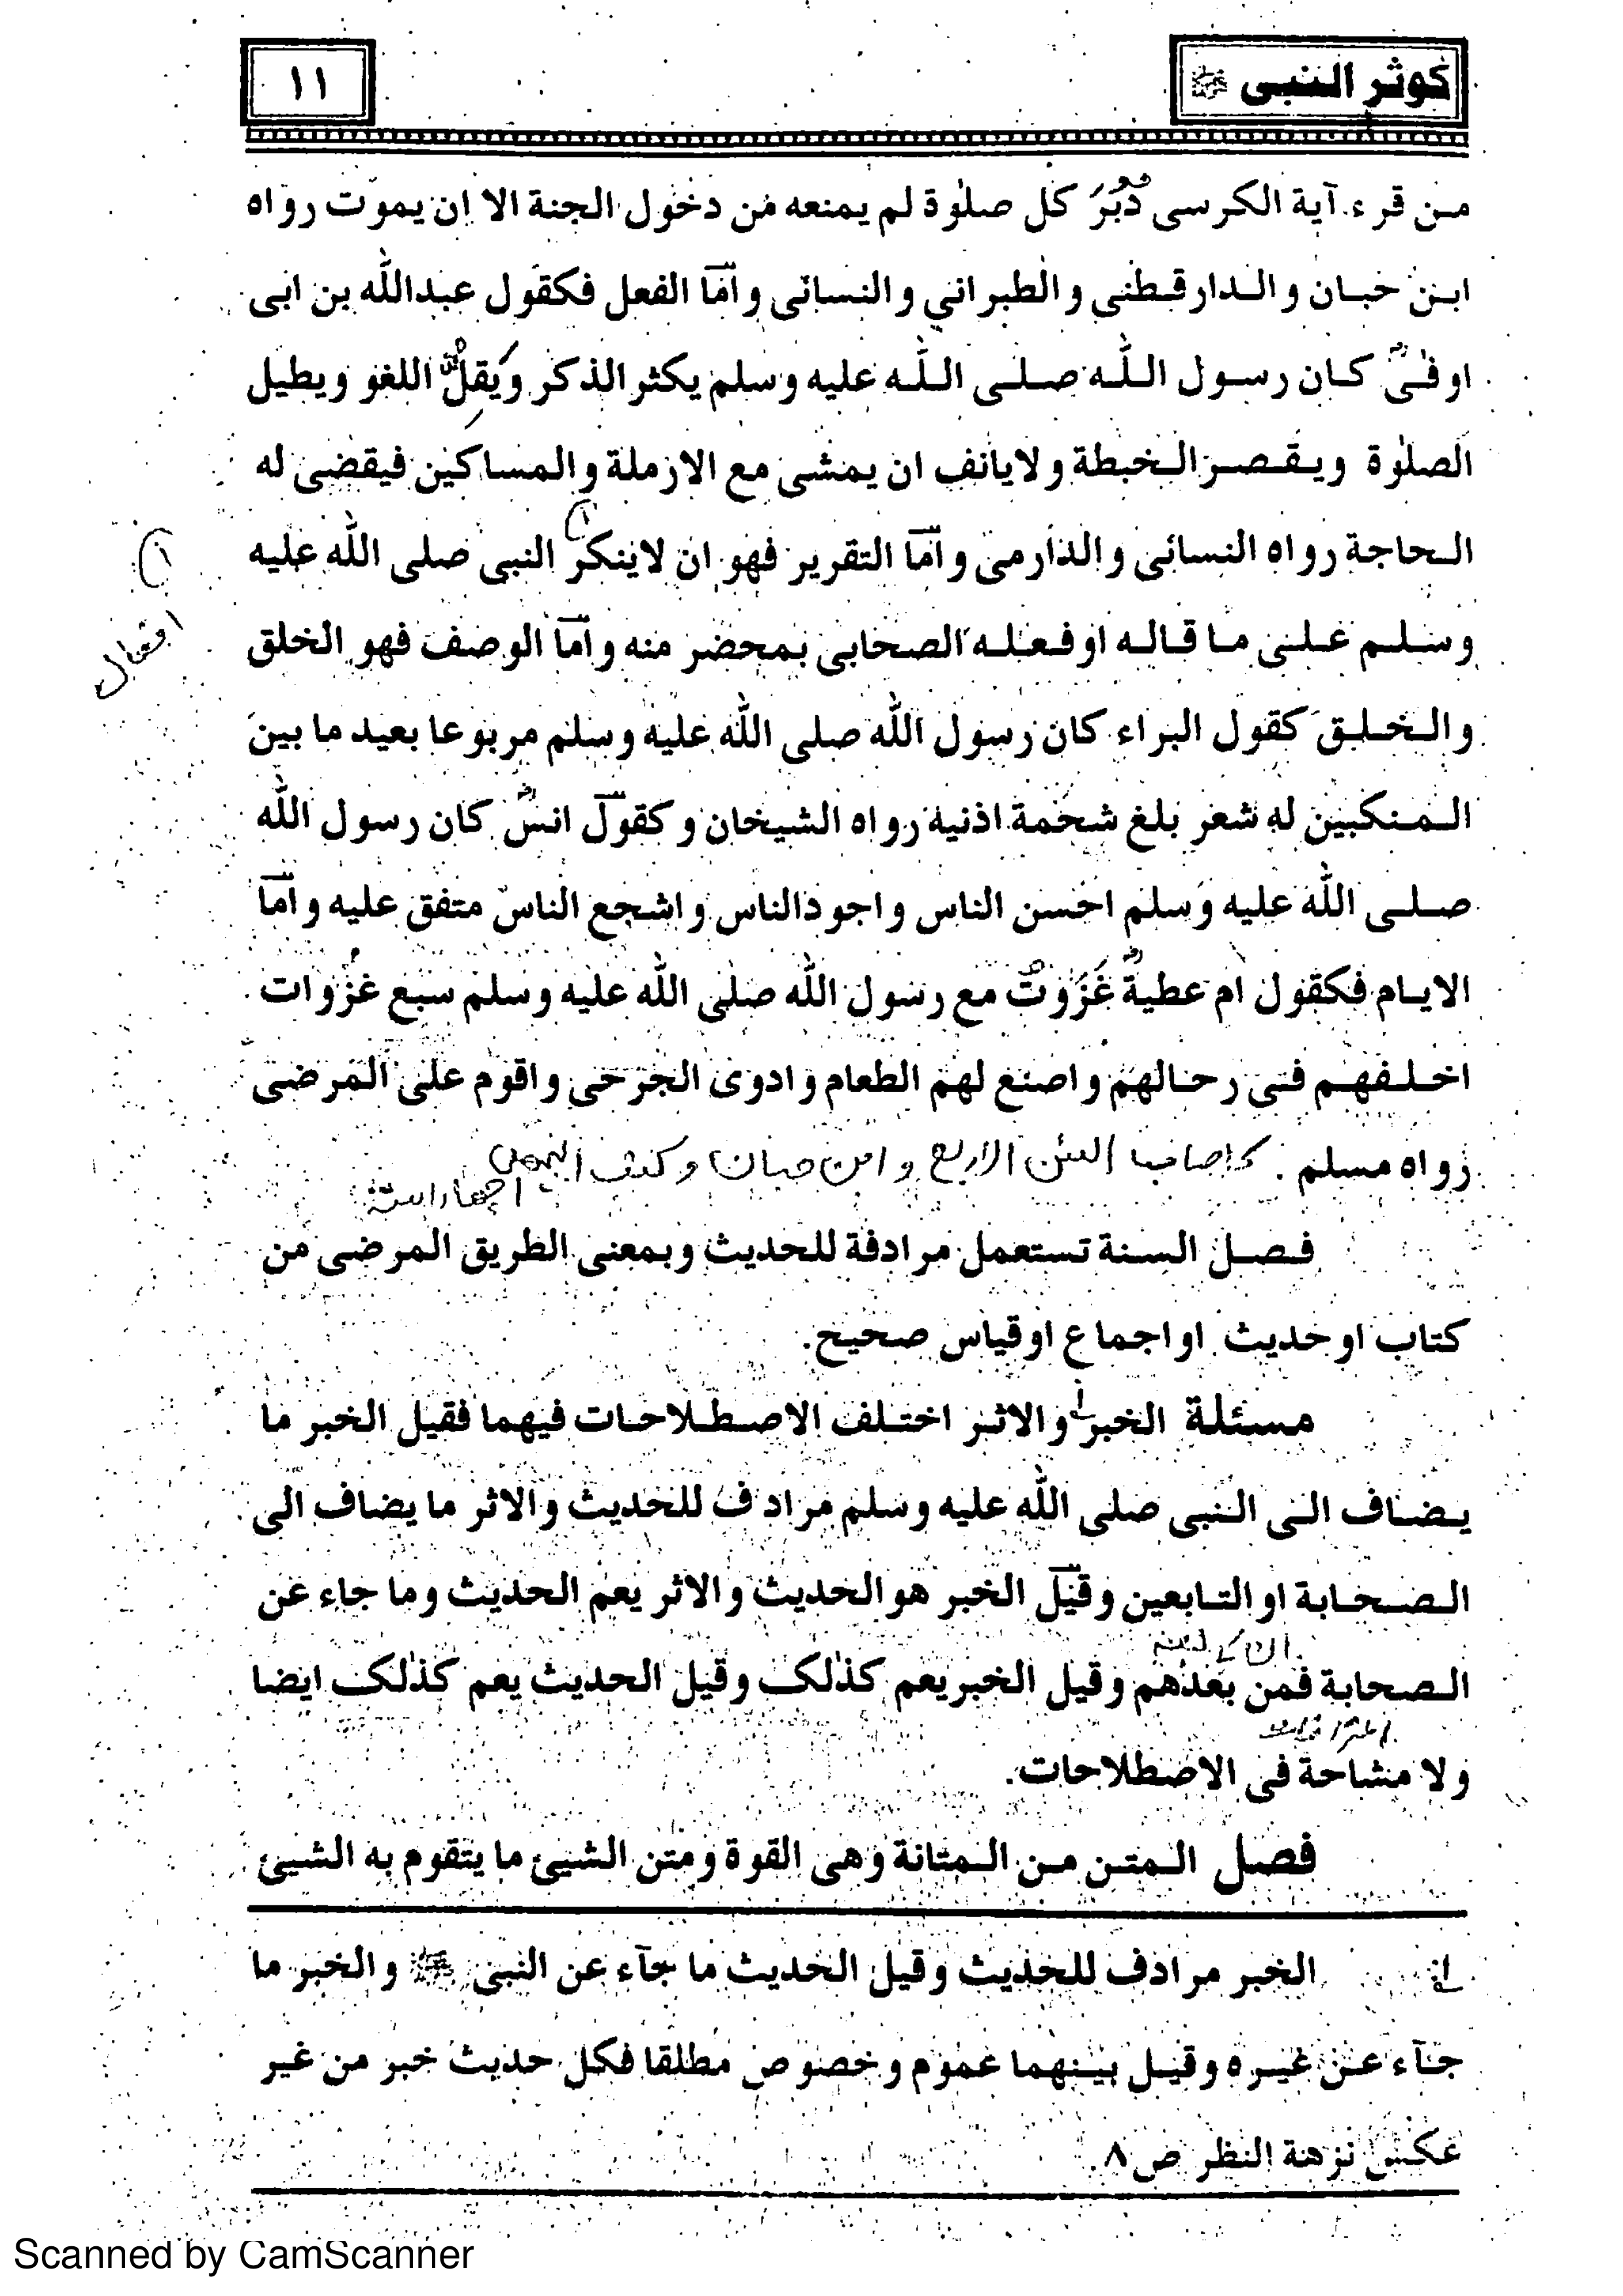 كوثر النبى ﷺ
١١
من قرء آية الكرسى دُبُرَ كل صلوٰة لم يمنعه من دخول الجنة الا ان يموت رواه
ابن حبان والدارقطنى والطبراني والنسائى وامّا الفعل فكقول عبدالله بن ابى
اوفىٰؓ كان رسول اللّٰه صلى اللّٰه عليه وسلم يكثر الذكر وَيُقِلُّ اللغو ويطيل
الصلوٰة ويقصر الخبطة ولا يانف ان يمشى مع الارملة والمساكين فيقضى له
الحاجة رواه النسائى والدارمى وامّا التقرير فهو ان لاينكر النبى صلى الله عليه
(١)
وسلم على ما قاله اوفعله الصحابى بمحضر منه وامّا الوصف فهو الخلق
والخلق كقول البراء كان رسول الله صلى الله عليه وسلم مربوعا بعيد ما بين
المنكبين له شعر بلغ شحمة اذنيه رواه الشيخان وكقول انسؓ كان رسول الله
صلى الله عليه وسلم احسن الناس واجودالناس واشجع الناس متفق عليه وامّا
الايام فكقول ام عطيةؓ غَزَوتُ مع رسول الله صلى الله عليه وسلم سبع غزوات
اخلفهم فى رحالهم واصنع لهم الطعام وادوى الجرحى واقوم على المرضى
رواه مسلم. السنن الاربع وابن حبان
فصل السنة تستعمل مرادفة للحديث وبمعنى الطريق المرضى من
كتاب اوحديث اواجماع اوقياس صحيح.
مسئلة الخبر١ والاثر اختلف الاصطلاحات فيهما فقيل الخبر ما
يضاف الى النبى صلى الله عليه وسلم مرادف للحديث والاثر ما يضاف الى
الصحابة اوالتابعين وقيل الخبر هوالحديث والاثر يعم الحديث وما جاء عن
الصحابة فمن بعدهم وقيل الخبريعم كذٰلک وقيل الحديث يعم كذٰلک ايضا
ولا مشاحة فى الاصطلاحات.
فصل المتن من المتانة وهى القوة ومتن الشيئ ما يتقوم به الشيئ
١ الخبر مرادف للحديث وقيل الحديث ما جآء عن النبى ﷺ والخبر ما
جآء عن غيره وقيل بينهما عموم وخصوص مطلقا فكل حديث خبر من غير
عكس نزهة النظر ص٨.
Scanned by CamScanner